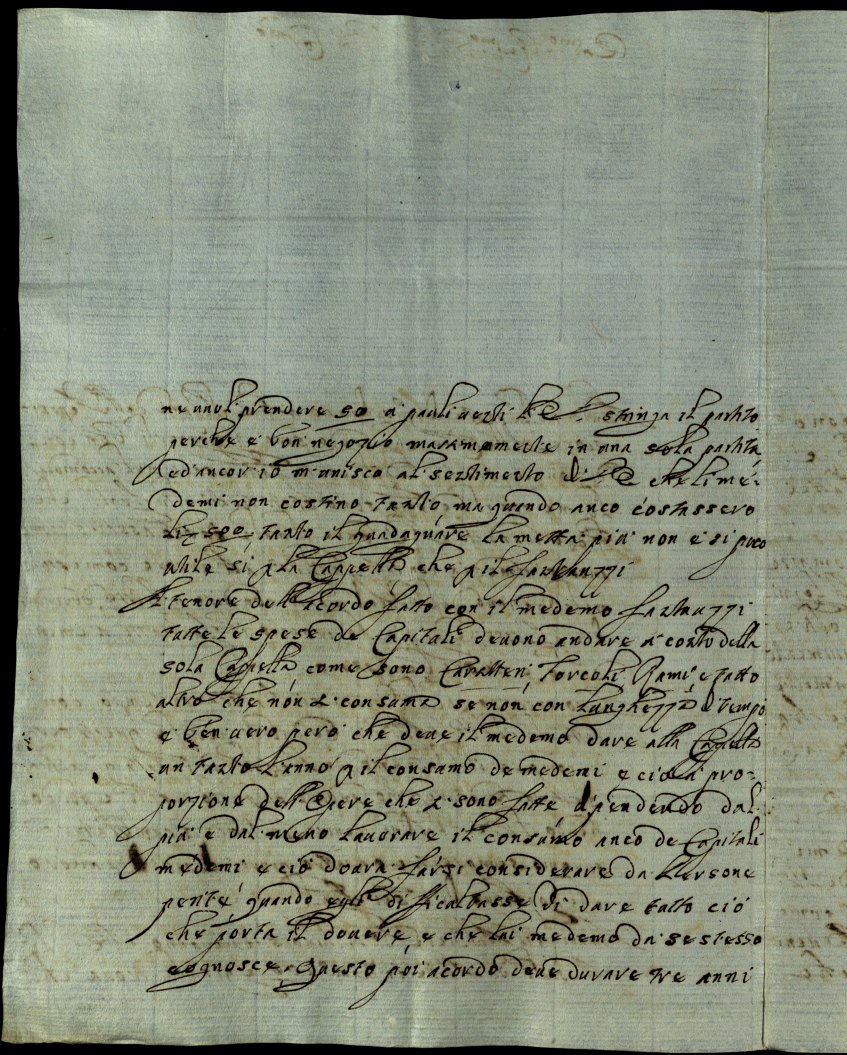 ne vuol prendere 50 a pauli venti stringa il partito
perche è bon negozio massimamente in una sola partita
ed ancor io m'unisco al sentimento di che li me-
demi non costino tanto, ma quando anco costassero
500 tanto il guadagnare la metta più non è si poco
utile si p la Cappella che p il Santinuzzi
A tenore dell'acordo fatto con il medemo Santinuzzi
tutte le spese de Capitali devono andare a conto della
sola Cappella come sono Caratteri, Torcoli, Rami e tutto
altro che non si consuma se non con lunghezza di tempo
è ben vero però che deve il medemo dare alla Cappella
un tanto l'anno p il consumo de medemi e ciò a pro-
porzione dell'Opere che si sono fatte dipendendo dal
più e dal meno lavorare il consumo anco de Capitali
medemi e ciò dovrà farsi considerare da Persone
perite quando egli dificaltasse di dare tutto ciò
che porta il dovere, e che lui medemo da se stesso
cognosce. Questo poi acordo deve durare tre anni